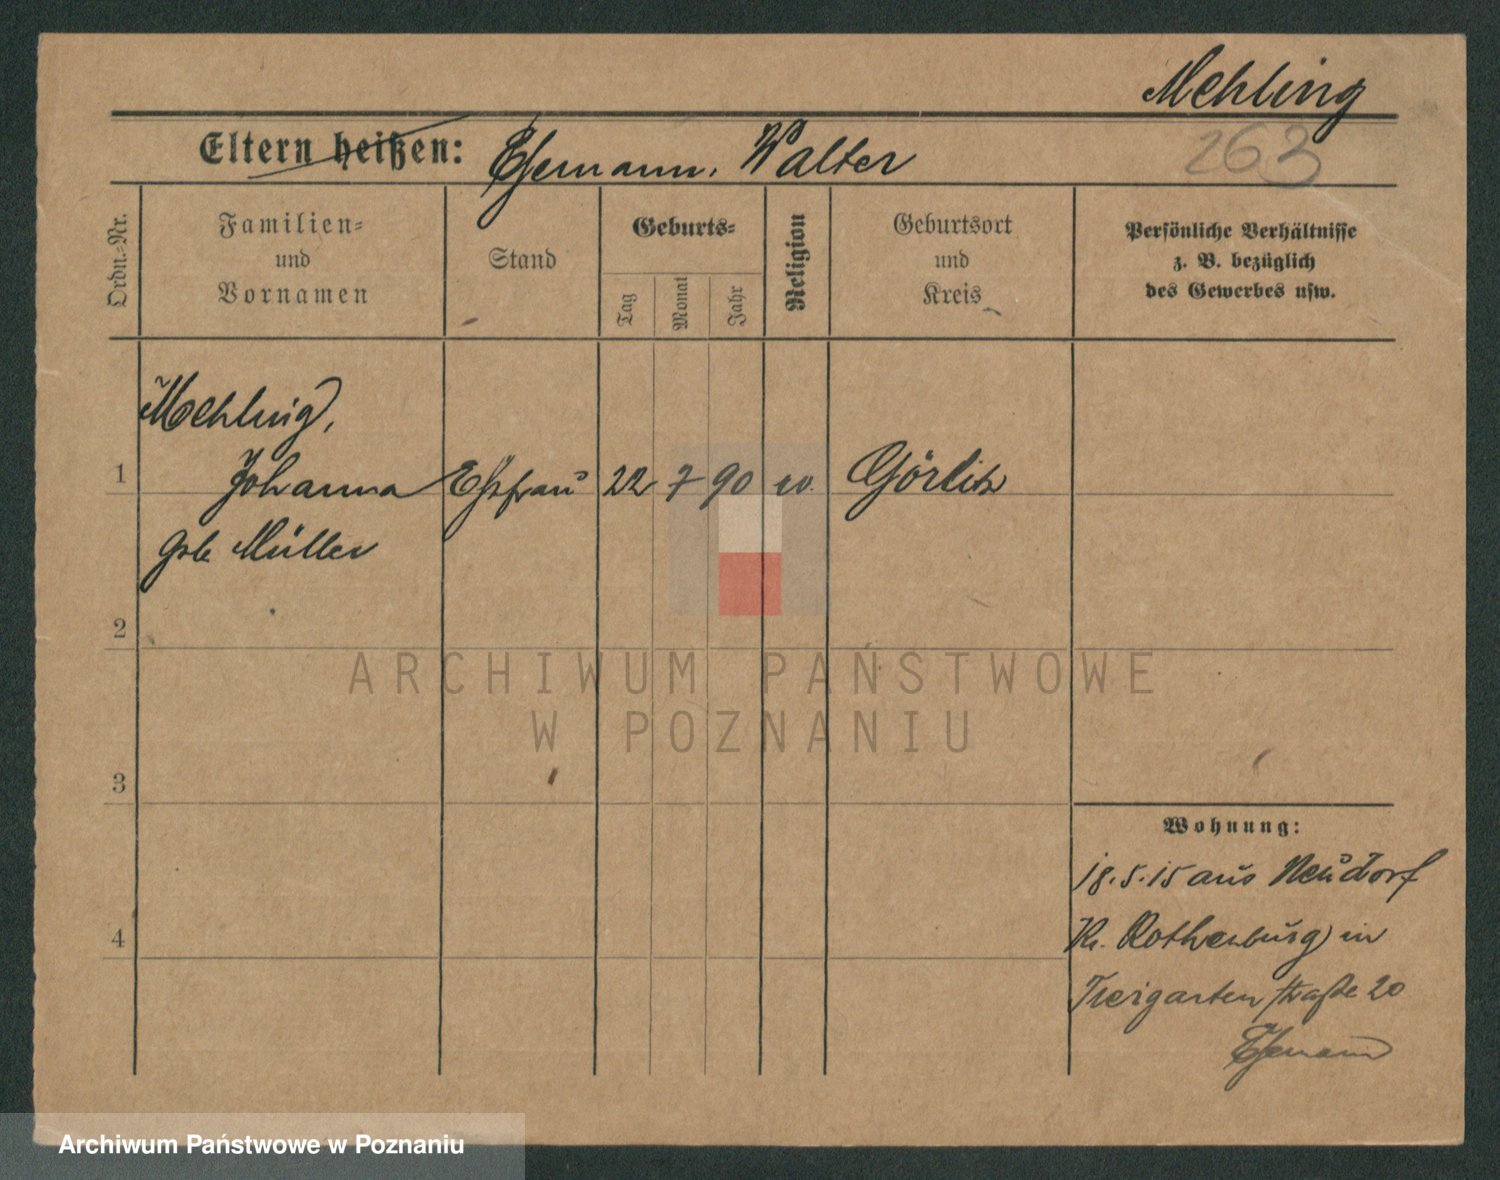 Mehling
263
Eltern heißen: Ehemann, Walter
Ordn.-Nr.
Familien-
und
Vornamen
Stand
Geburts-
Tag
Monat
Jahr
Religion
Geburtsort
und
Kreis
Persönliche Verhältnisse
z. B. bezüglich
des Gewerbes usw.
Mehling,
1 Johanna Ehefrau 22 7 90 ev. Görlitz
geb. Müller
2
3
4
Wohnung:
18.5.15 aus Neudorf
Kr. Rothenburg in
Tiergartenstraße 20
Ehemann
ARCHIWUM PAŃSTWOWE
W POZNANIU
Archiwum Państwowe w Poznaniu